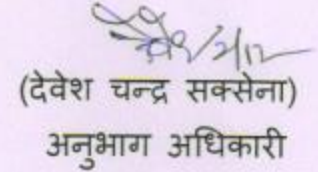 (देवेश चन्द्र सक्सेना)
अनुभाग अधिकारी